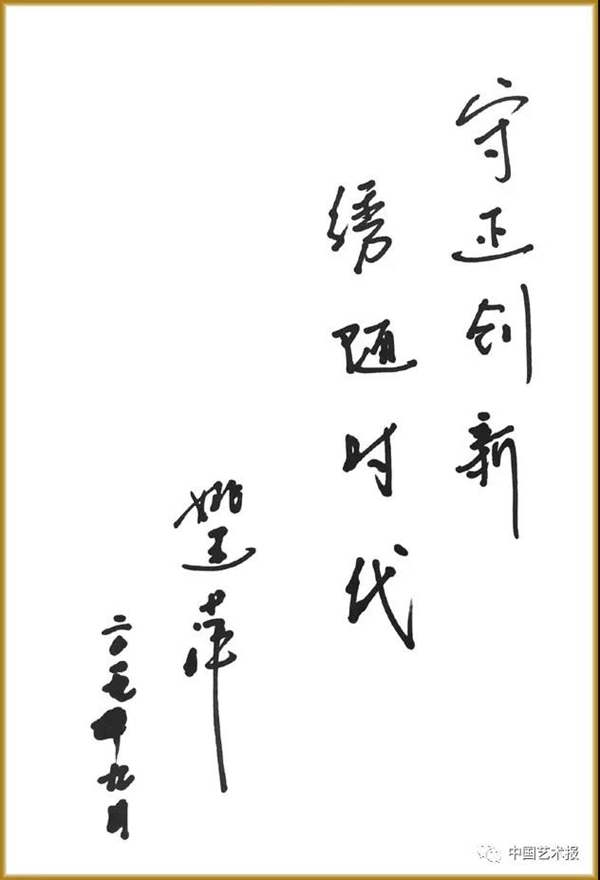 守正创新
绣随时代
姚建萍
二〇一七年九月
中国艺术报